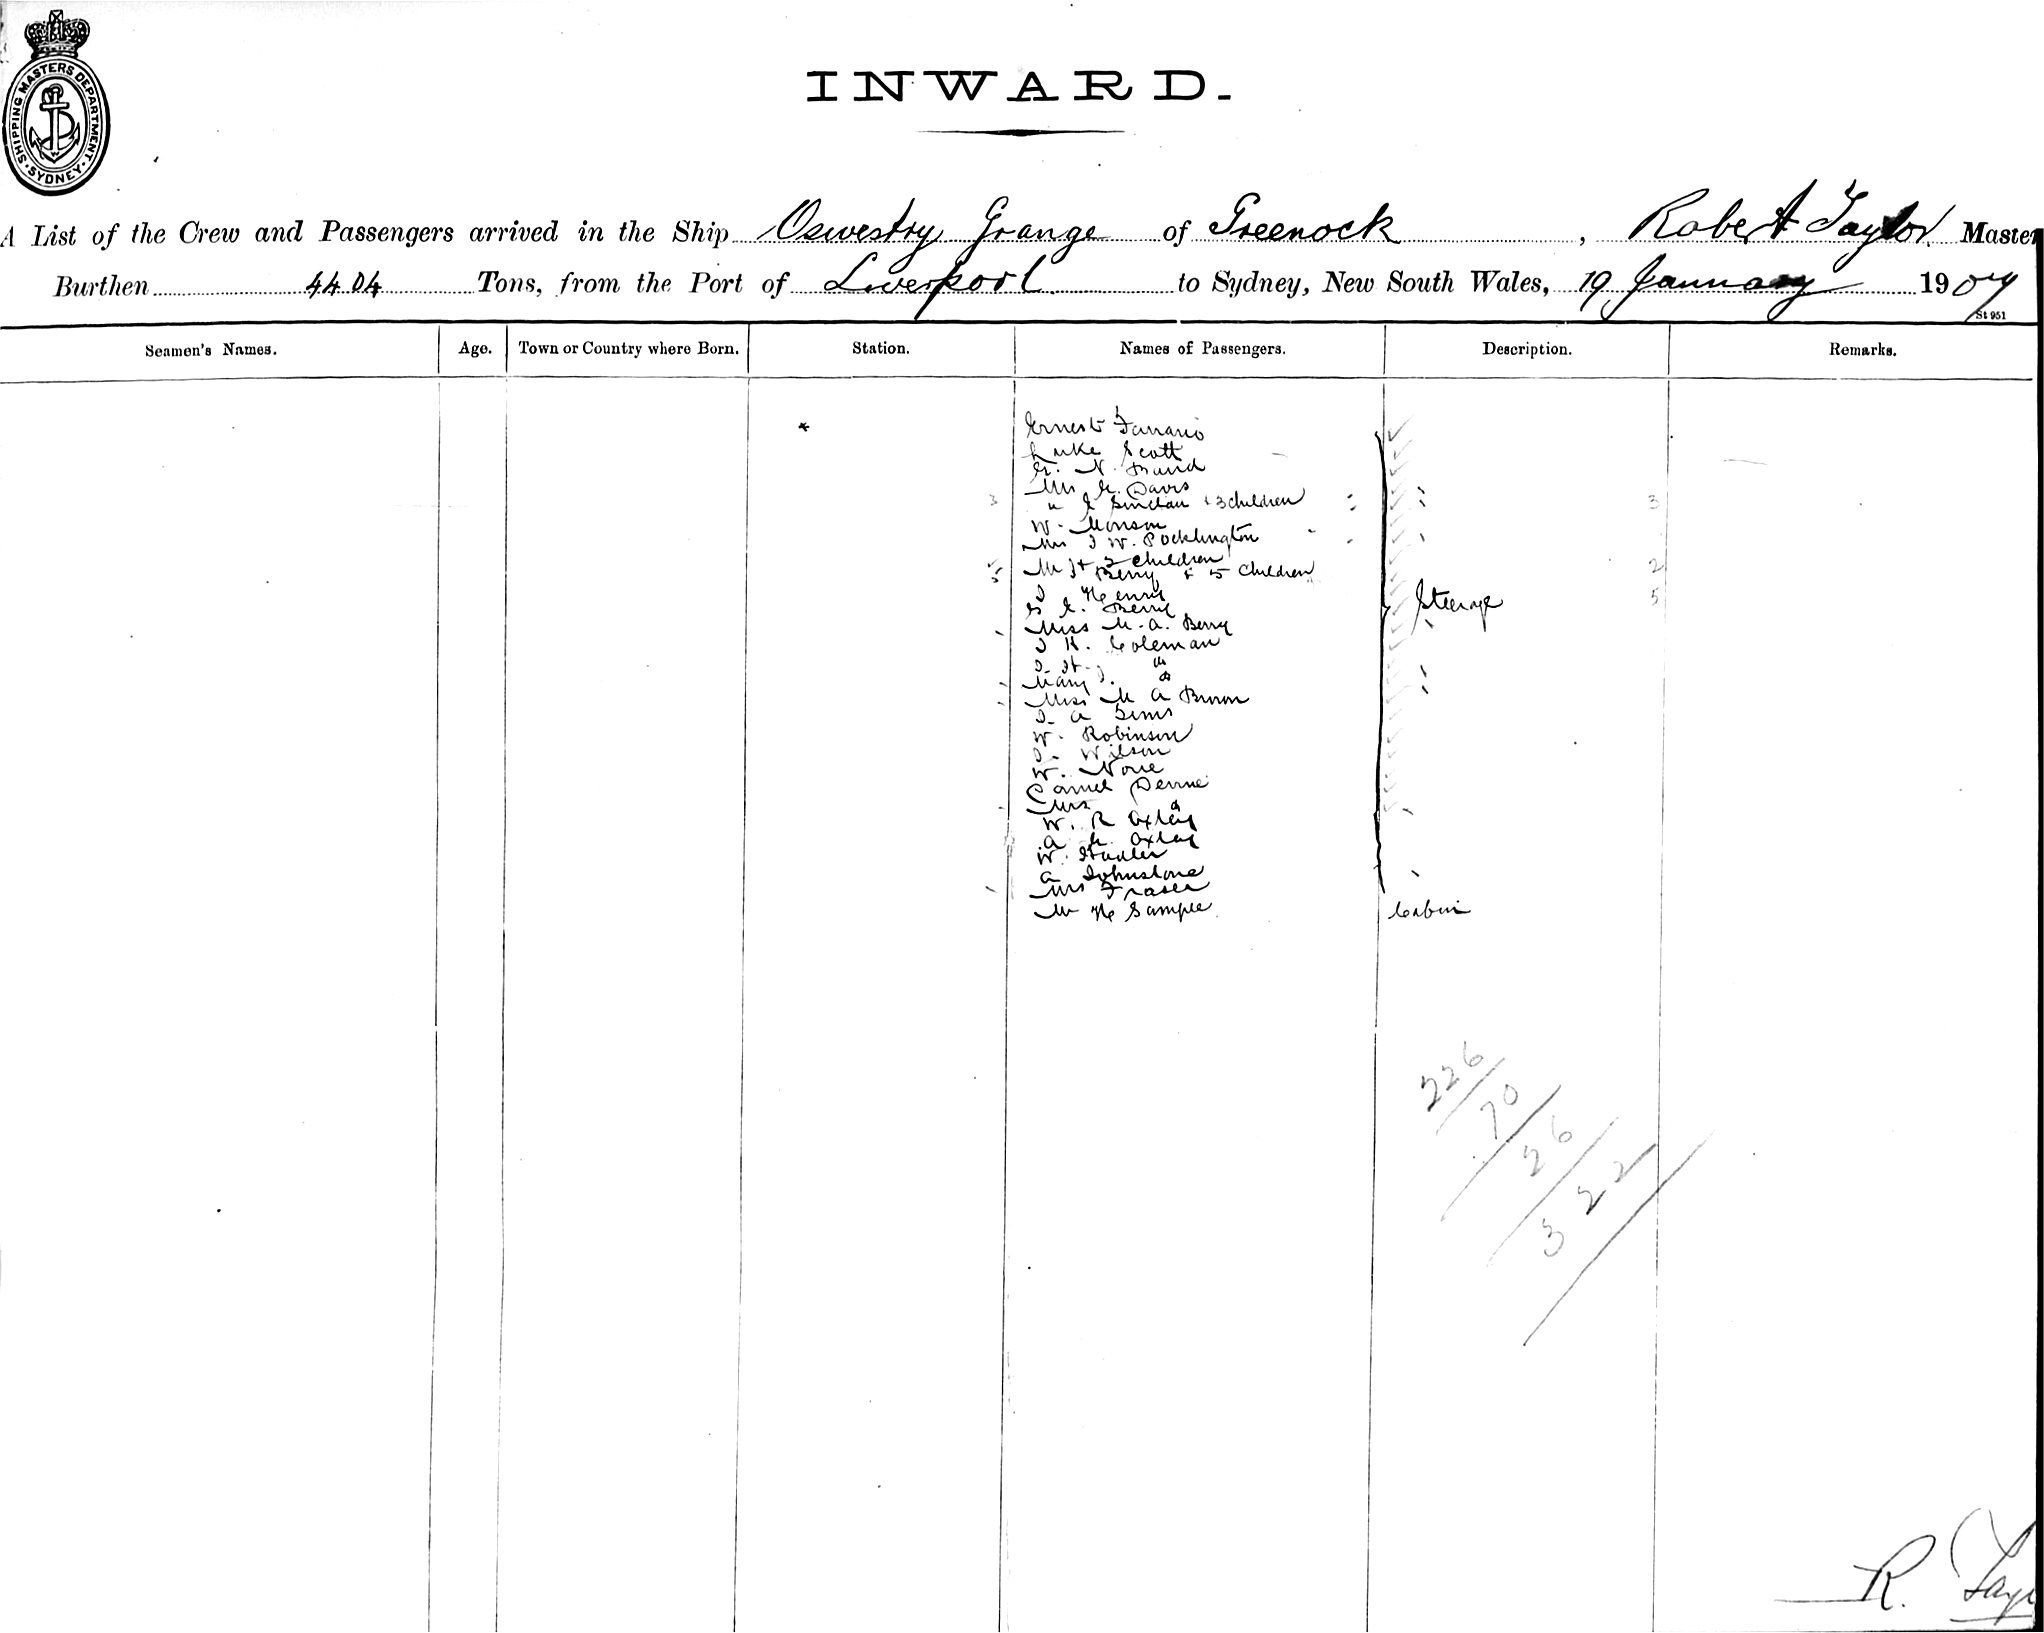 SHIPPING MASTERS DEPARTMENT. SYDNEY.
INWARD.
A List of the Crew and Passengers arrived in the Ship Oswestry Grange of Greenock, Robert Taylor Master
Burthen 4404 Tons, from the Port of Liverpool to Sydney, New South Wales, 19 January 1907
St 951
Seamen's Names. Age. Town or Country where Born. Station. Names of Passengers. Description. Remarks.
Ernest
Luke Scott
N.
Mrs Davis
Sinclair & 3 children 3
W. Monson
Mrs J W. Pocklington
& 2 children 2
Berry & 5 children
J Henry 5
G E. Berry Steerage
Miss M. A. Berry
J H. Coleman
J. H. "
Mary J. "
Miss M A Brown
J. A Sims
W. Robinson
J. Wilson
W. None
Devine
Mrs "
W. R Oxley
A E Oxley
W.
A Johnstone
Mrs Fraser
Mr H Sample Cabin
226
70
26
322
R.